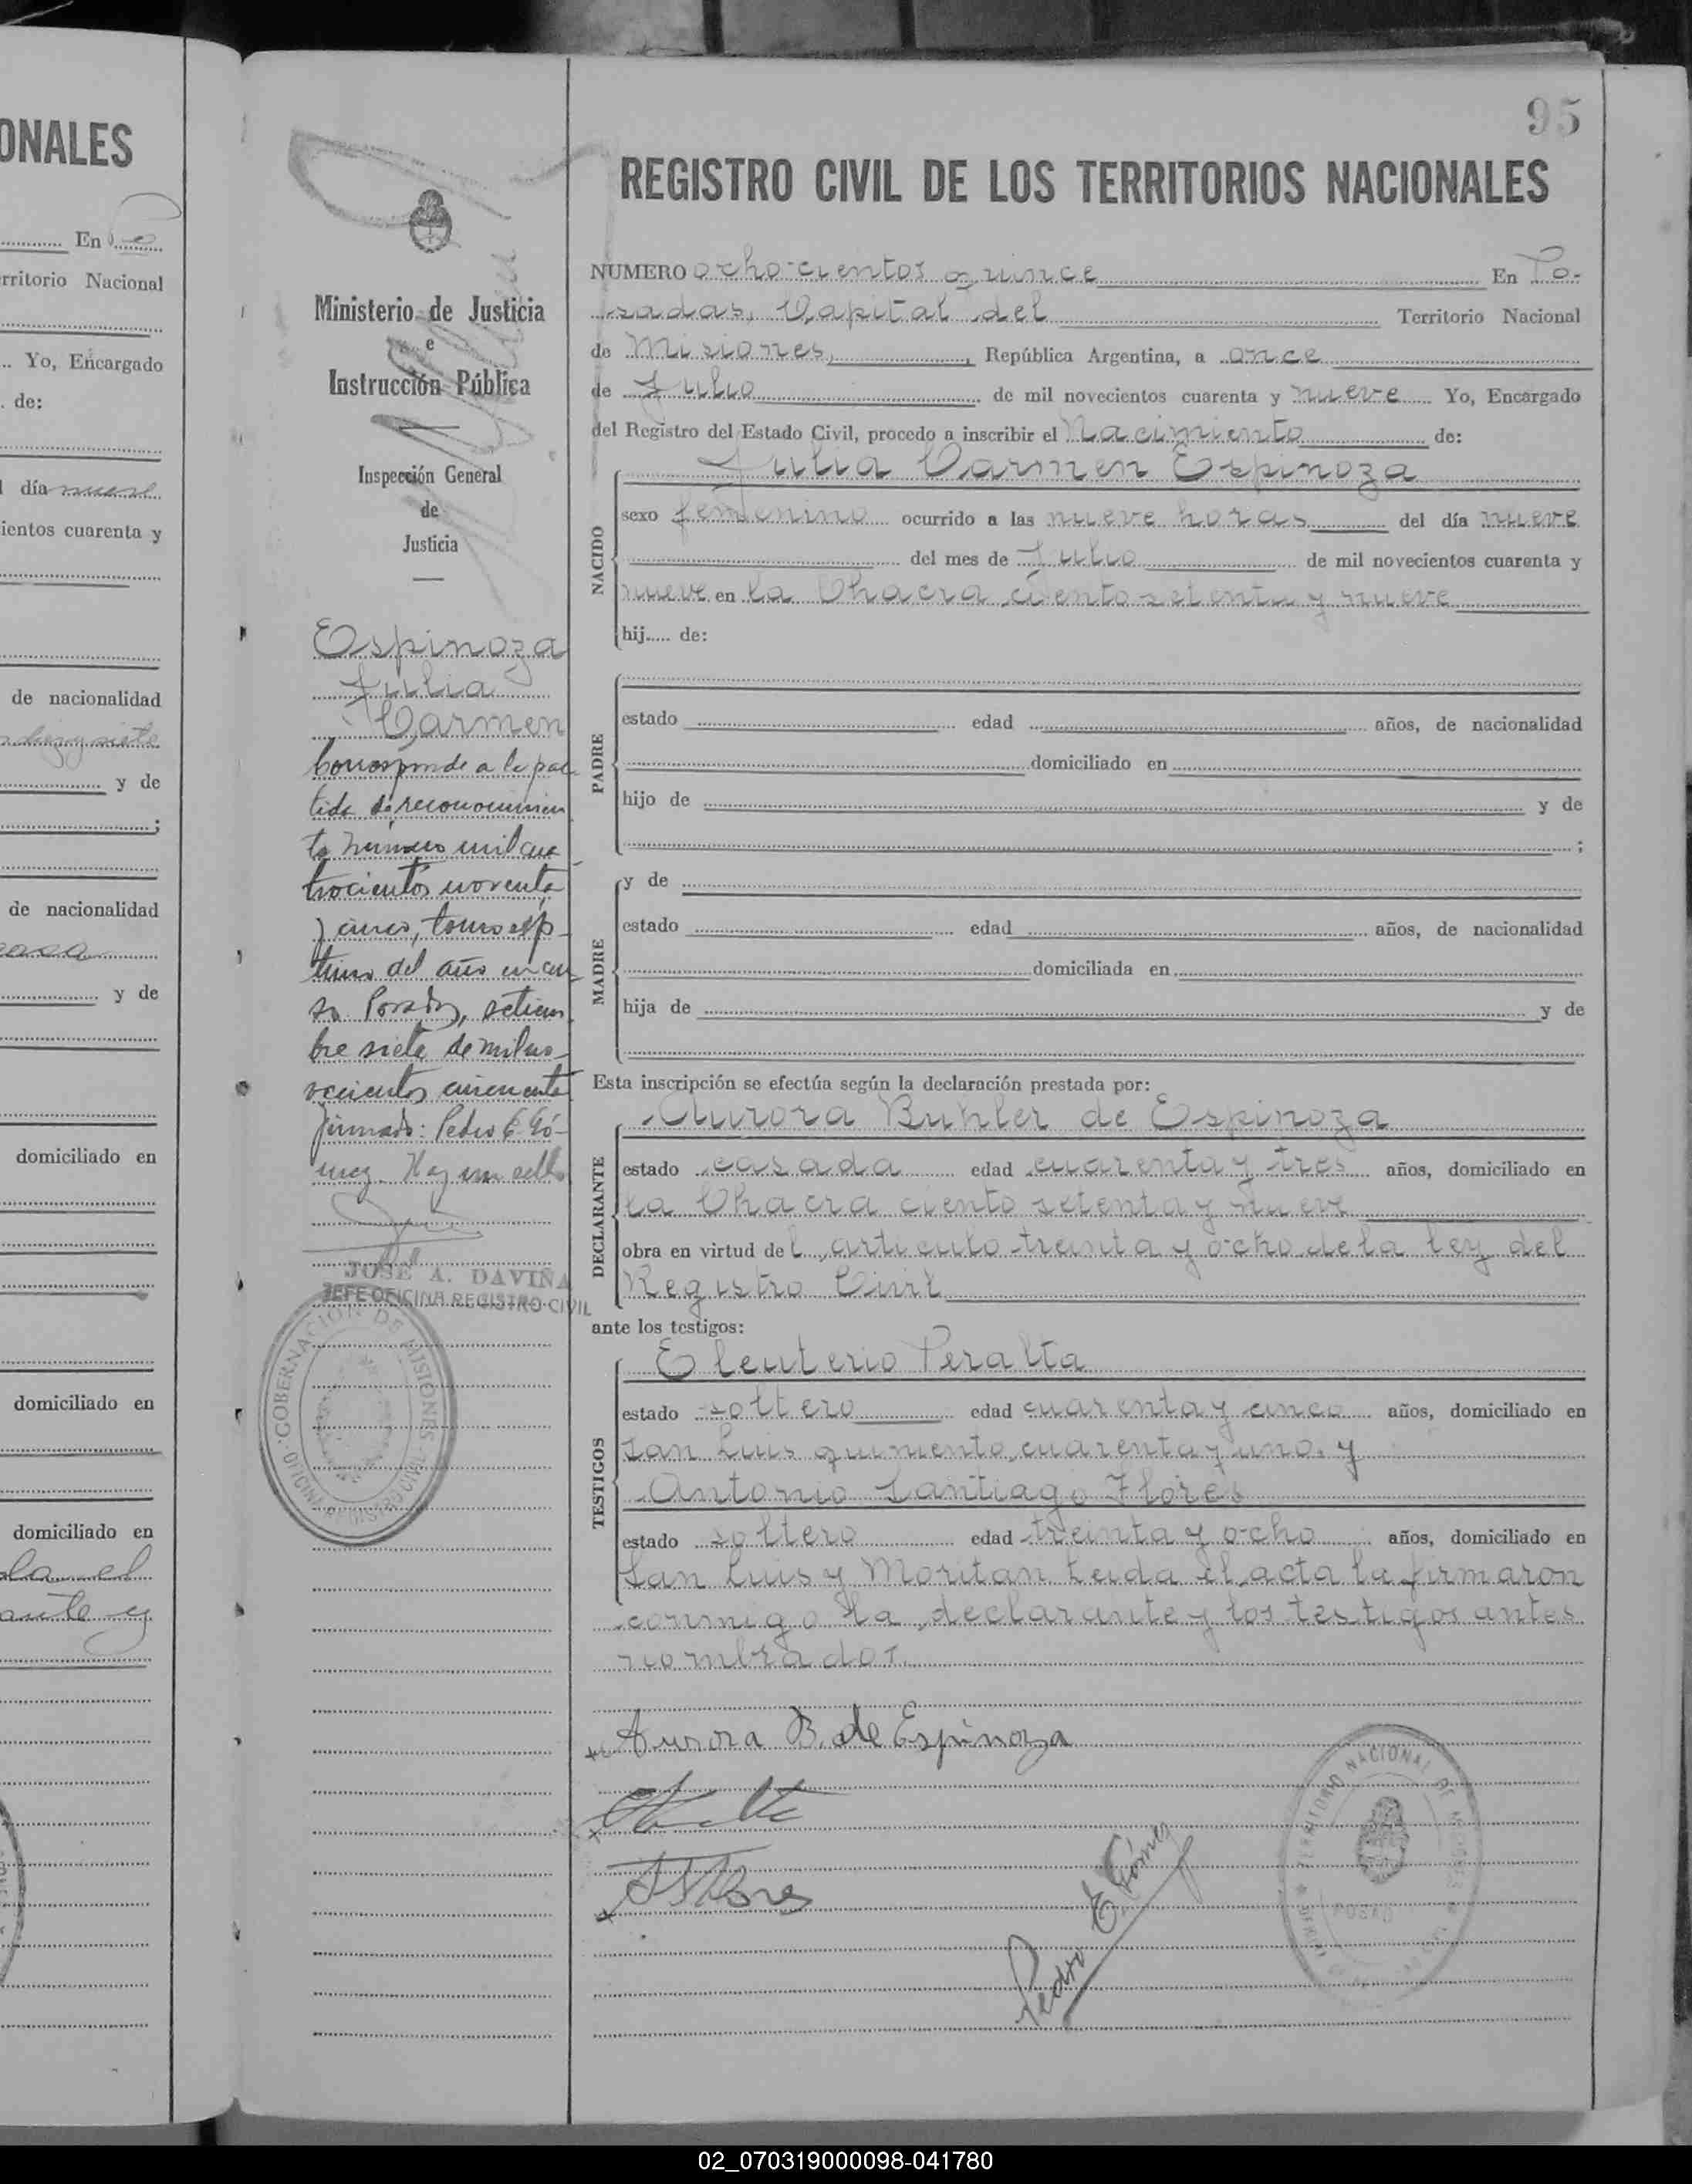 ONALES
En
erritorio Nacional
Yo, Encargado
de:
día nueve
ientos cuarenta y
de nacionalidad
diez y siete
y de
;
de nacionalidad
y de
domiciliado en
domiciliado en
domiciliado en
la el
ante y
95
Ministerio de Justicia
e
Instrucción Pública
Inspección General
de
Justicia
Espinoza
Julia
Carmen
Corresponde a la par
tida de reconocimien
to número mil cua
trocientos noventa
y cinco, tomo sép
timo del año en cur
so Posadas, setiem
bre siete de mil no
vecientos cincuenta
firmado: Pedro E. Gó-
mez. Hay un sello
JOSE A. DAVIÑA
JEFE OFICINA REGISTRO CIVIL
GOBERNACION DE MISIONES
OFICINA REGISTRO CIVIL
REGISTRO CIVIL DE LOS TERRITORIOS NACIONALES
NUMERO ochocientos quince En Po-
sadas, Capital del Territorio Nacional
de Misiones, República Argentina, a once
de Julio de mil novecientos cuarenta y nueve Yo, Encargado
del Registro del Estado Civil, procedo a inscribir el Nacimiento de:
NACIDO
Julia Carmen Espinoza
sexo femenino ocurrido a las nueve horas del día nueve
del mes de Julio de mil novecientos cuarenta y
nueve en la Chacra ciento setenta y nueve
hij..... de:
PADRE
estado edad años, de nacionalidad
domiciliado en
hijo de y de
;
MADRE
y de
estado edad años, de nacionalidad
domiciliada en
hija de y de
Esta inscripción se efectúa según la declaración prestada por:
DECLARANTE
Aurora Buhler de Espinoza
estado casada edad cuarenta y tres años, domiciliado en
la Chacra ciento setenta y nueve
obra en virtud del articulo treinta y ocho de la ley del
Registro Civil
ante los testigos:
TESTIGOS
Eleuterio Peralta
estado soltero edad cuarenta y cinco años, domiciliado en
San Luis quiniento cuarenta y uno. y
Antonio Santiago Flores
estado soltero edad treinta y ocho años, domiciliado en
San Luis y Moritan Leida el acta la firmaron
conmigo la declarante y los testigos antes
nombrados.
Aurora B. de Espinoza
Flores
Pedro E. Gómez
TERRITORIO NACIONAL DE MISIONES
POSAD
02_070319000098-041780